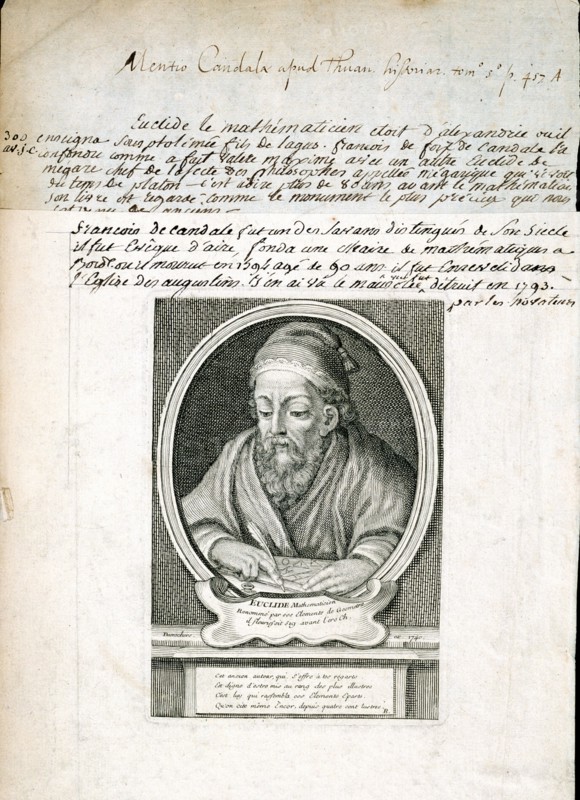 Mentio Candalæ apud Thuan. historiar. tomº 5º p. 457 A
Euclide le mathématicien étoit d'alexandrie ou il
300 av. J.C. enseigna sous ptolémée fils de lagus. françois de foix de Candale l'a
confondu comme a fait Valere maxime avec un autre Euclide de
megare chef de la secte des philosophes appellés mégarique qui vivoit
du tems de platon c'est adire plus de 80 ans avant le mathématicien
son livre est regardé comme le monument le plus précieux que nous
francois de candale fut un des savans distingués de son siecle
il fut Evêque d'aire, fonda une chaire de mathématiques a
bord. ou il mourut en 1594 agé de 90 ans il fut Enseveli dans
l'Eglise des augustins. J'en ai vu le mausolée qui fut détruit en 1793.
par les novateurs
EUCLIDE Mathematicien
Renommé par ses Elements de Geometrie
il fleurissoit 509 avant Lers Ch.
1740
Cet ancien auteur, qui s'offre à tes regarts
Est digne d'estre mis au rang des plus illustres
C'est luy qui rassembla ces Elements Eparts
Qu'on cite même Encor, depuis quatre cent lustres
R.